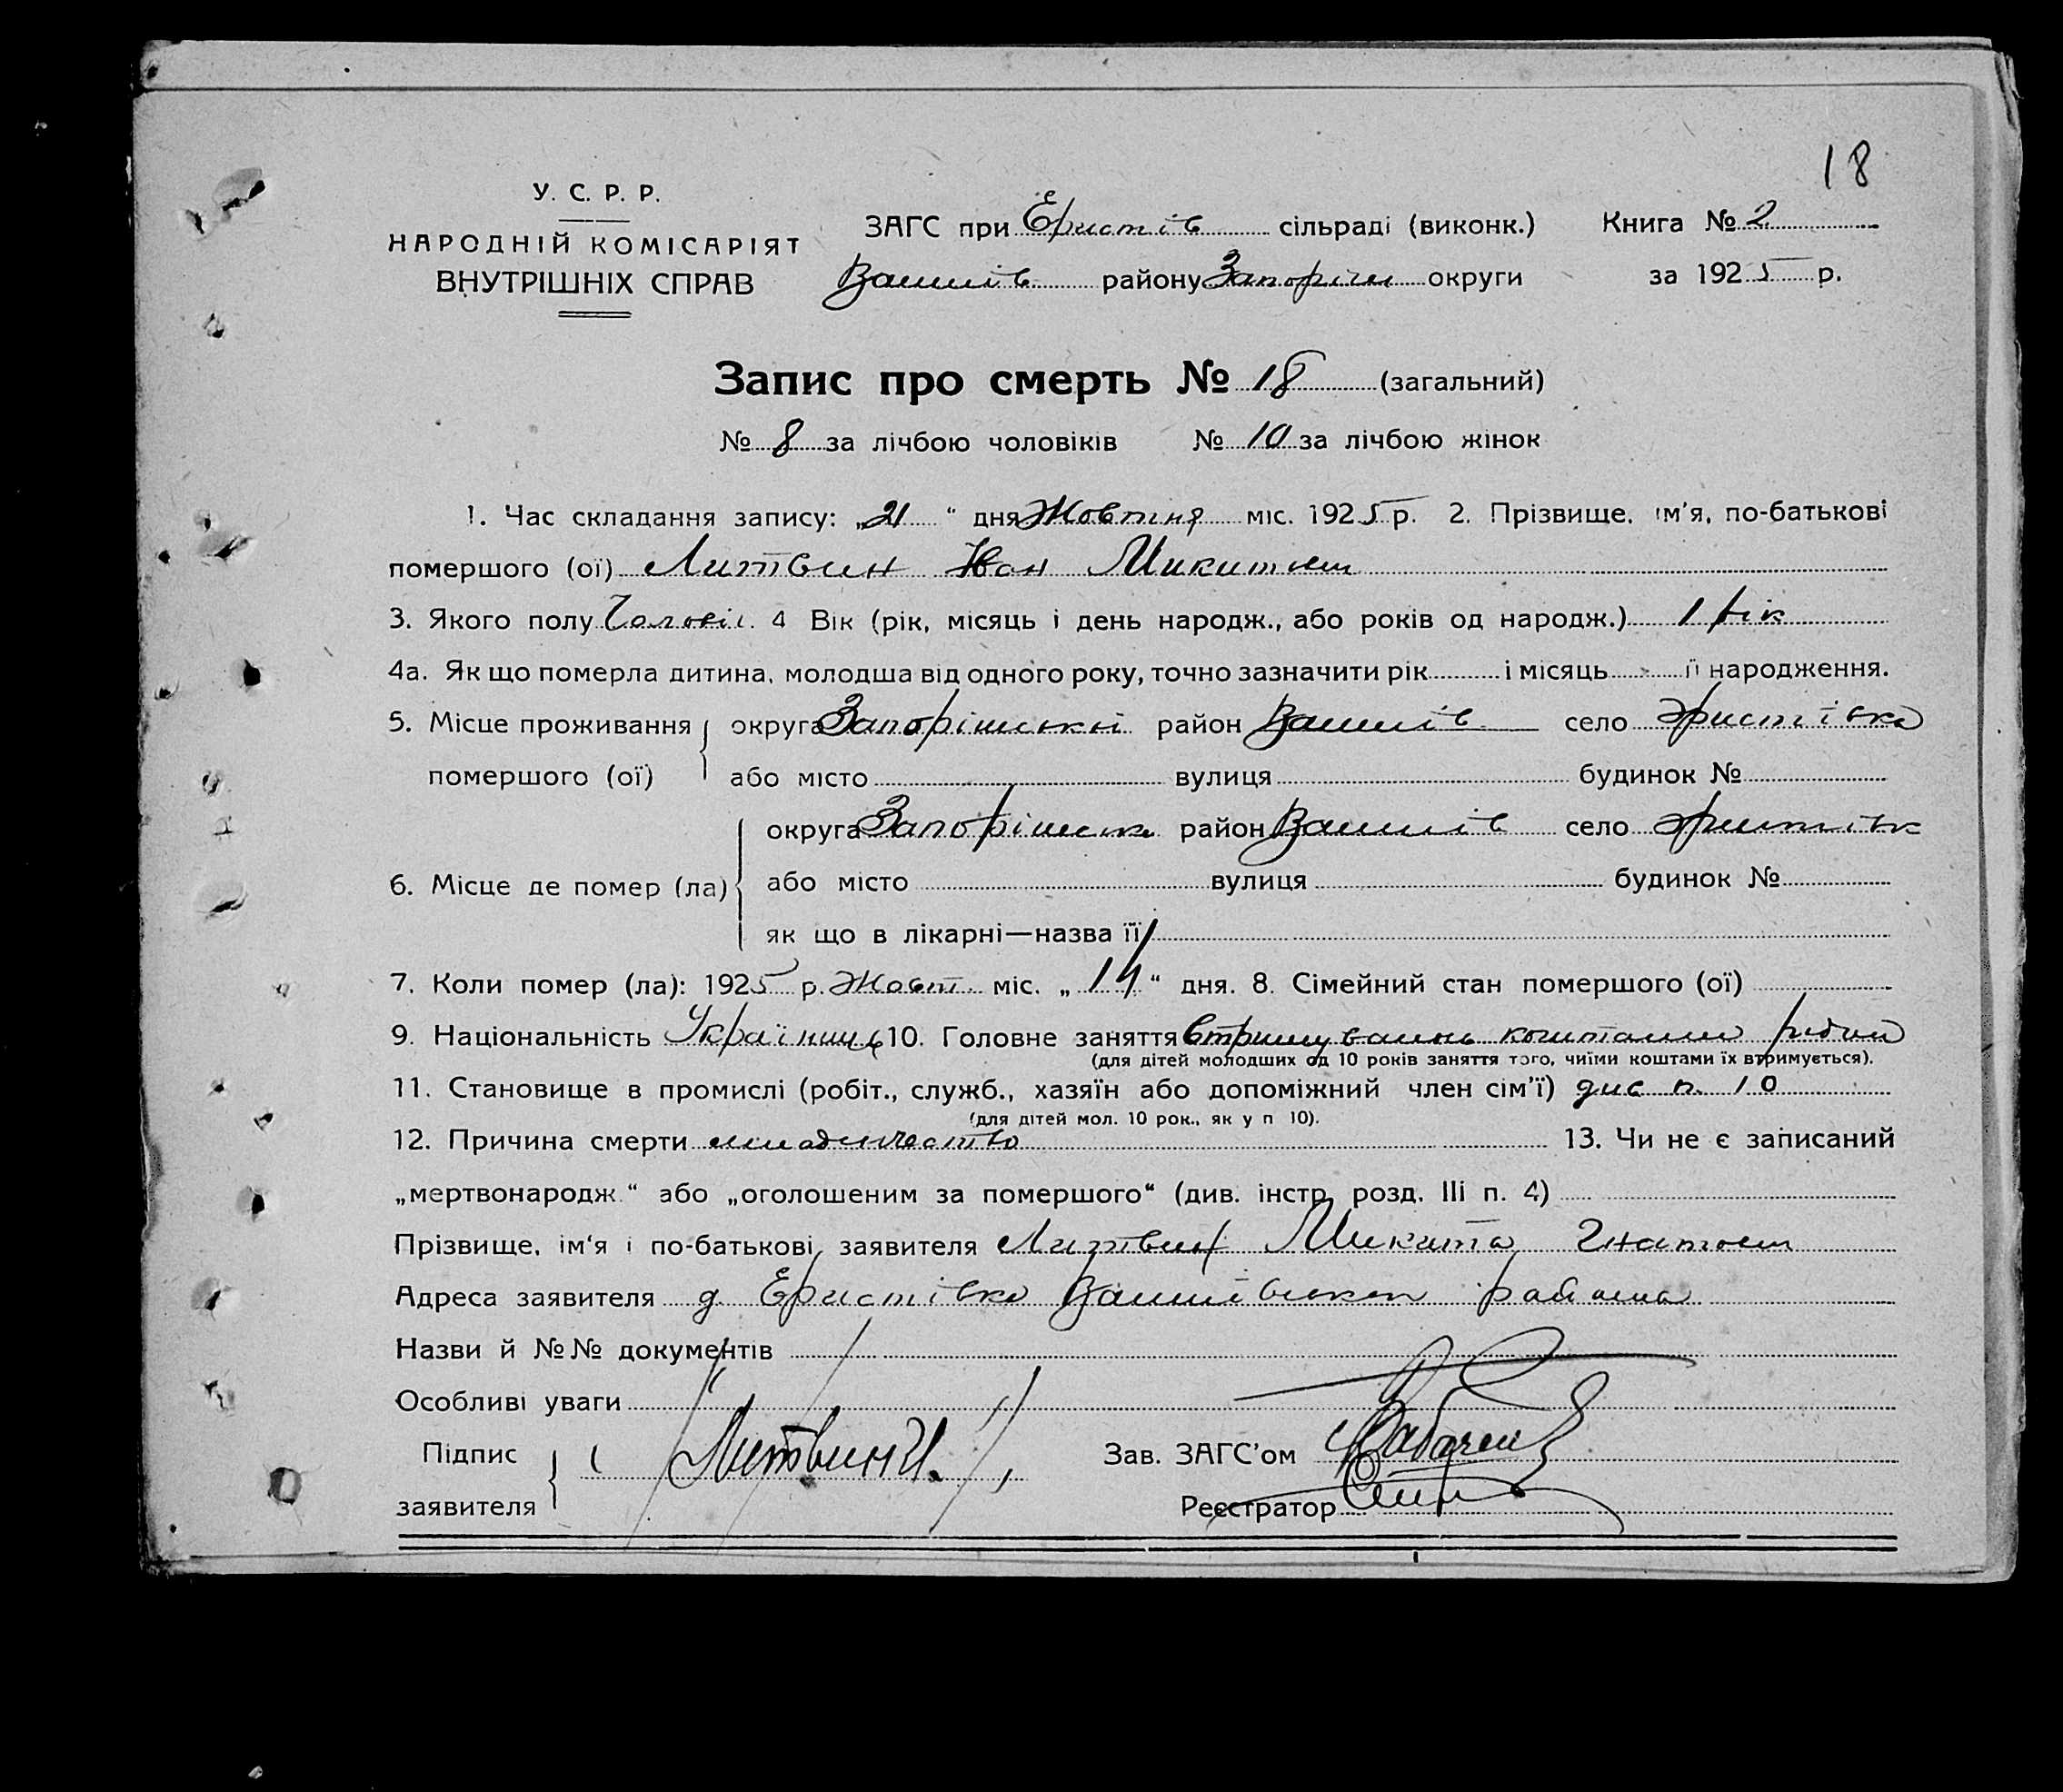 18
У. С. Р. Р.
НАРОДНІЙ КОМІСАРІЯТ
ВНУТРІШНІХ СПРАВ
ЗАГС при Еристів сільраді (виконк.) Книга № 2
району Запоріж округи за 1925 р.
Запис про смерть № 18 (загальний)
№ 8 за лічбою чоловіків № 10 за лічбою жінок
1. Час складання запису: „21“ дня Жовтня міс. 1925 р. 2. Прізвище, ім'я, по-батькові
помершого (ої) Литвин Іван Микитов
3. Якого полу Чоловіч. 4 Вік (рік, місяць і день народж., або років од народж.) 1 рік
4а. Як що померла дитина, молодша від одного року, точно зазначити рік і місяць її народження.
5. Місце проживання округа район село Еристівка
помершого (ої) або місто вулиця будинок №
округа район село
6. Місце де помер (ла) або місто вулиця будинок №
як що в лікарні—назва її
7. Коли помер (ла): 1925 р. Жовт міс. „14“ дня. 8. Сімейний стан помершого (ої)
9. Національність Українець 10. Головне заняття коштами
(для дітей молодших од 10 років заняття того, чиїми коштами їх втримується).
11. Становище в промислі (робіт., служб., хазяїн або допоміжний член сім'ї) див п. 10
(для дітей мол. 10 рок., як у п 10).
12. Причина смерти младенчество 13. Чи не є записаний
„мертвонародж.“ або „оголошеним за помершого“ (див. інстр. розд. III п. 4)
Прізвище, ім'я і по-батькові заявителя Литвин Микита Гнатов
Адреса заявителя д. Еристівка района
Назви й №№ документів
Особливі уваги
Підпис Литвин И. Зав. ЗАГС'ом
заявителя Реєстратор